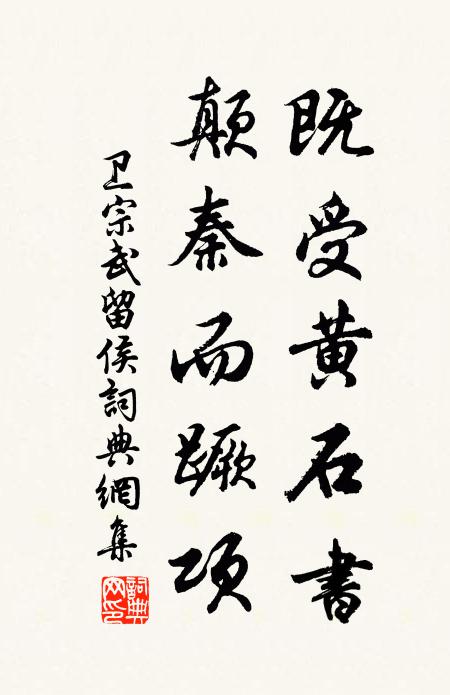 既受黄石書
顛秦而蹶項
卫宗武留侯詞典網集
詞典网印